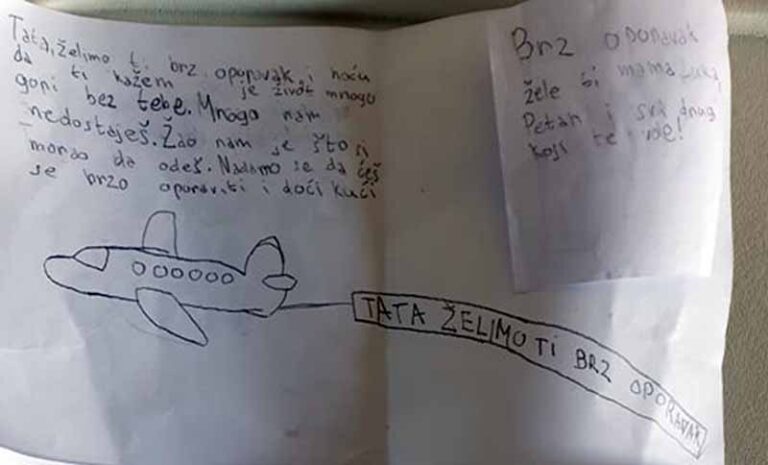 Tata, želimo ti brz oporavak, i hoću
da ti kažem je život mnogo
gori bez tebe. Mnogo nam
nedostaješ. Žao nam je što si
morao da odeš. Nadamo se da ćeš
se brzo oporaviti i doći kući
Brz oporavak
žele ti mama Luka,
Petar i svi drugi
koji te vole!
TATA ŽELIMO TI BRZ OPORAVAK